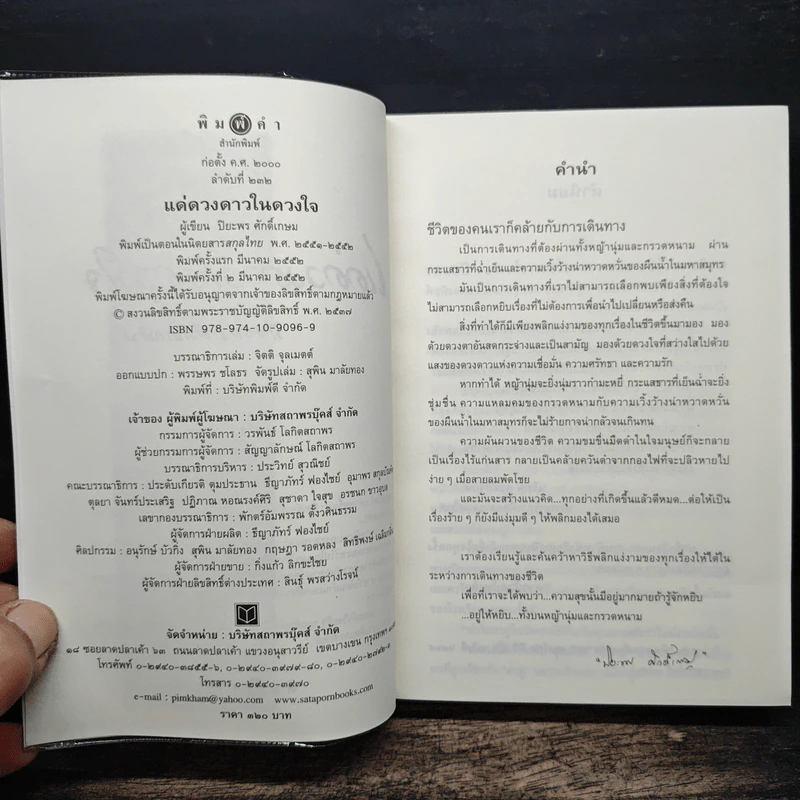 พิม พ์ คำ
สำนักพิมพ์
ก่อตั้ง ค.ศ. ๒๐๐๐
ลำดับที่ ๒๓๒
แด่ดวงดาวในดวงใจ
ผู้เขียน ปิยะพร ศักดิ์เกษม
พิมพ์เป็นตอนในนิตยสารสกุลไทย พ.ศ. ๒๕๕๑-๒๕๕๒
พิมพ์ครั้งแรก มีนาคม ๒๕๕๒
พิมพ์ครั้งที่ ๒ มีนาคม ๒๕๕๒
พิมพ์โฆษณาครั้งนี้ได้รับอนุญาตจากเจ้าของลิขสิทธิ์ตามกฎหมายแล้ว
© สงวนลิขสิทธิ์ตามพระราชบัญญัติลิขสิทธิ์ พ.ศ. ๒๕๓๗
ISBN 978-974-10-9096-9
บรรณาธิการเล่ม : จิตติ จุลเมตต์
ออกแบบปก : พรรษพร ชโลธร จัดรูปเล่ม : สุพิน มาลัยทอง
พิมพ์ที่ : บริษัทพิมพ์ดี จำกัด
เจ้าของ ผู้พิมพ์ผู้โฆษณา : บริษัทสถาพรบุ๊คส์ จำกัด
กรรมการผู้จัดการ : วรพันธ์ โลกิตสถาพร
ผู้ช่วยกรรมการผู้จัดการ : สัญญาลักษณ์ โลกิตสถาพร
บรรณาธิการบริหาร : ประวิทย์ สุวณิชย์
คณะบรรณาธิการ : ประดับเกียรติ ตุมประธาน ธีญาภัทร์ ฟองไชย์ อุมาพร
ตุลยา จันทร์ประเสริฐ ปฏิภาณ หอณรงค์ศิริ สุชาดา ใจสุข อรชนก
เลขากองบรรณาธิการ : พักตร์อัมพรรณ ตั้งวศินธรรม
ผู้จัดการฝ่ายผลิต : ธีญาภัทร์ ฟองไชย์
ศิลปกรรม : อนุรักษ์ บัวกิ่ง สุพิน มาลัยทอง กฤษฎา รอดหลง สิทธิพงษ์
ผู้จัดการฝ่ายขาย : กิ่งแก้ว ลิกขะไชย
ผู้จัดการฝ่ายลิขสิทธิ์ต่างประเทศ : สินธุ์ พรสว่างโรจน์
จัดจำหน่าย : บริษัทสถาพรบุ๊คส์ จำกัด
๑๘ ซอยลาดปลาเค้า ๖๓ ถนนลาดปลาเค้า แขวงอนุสาวรีย์ เขตบางเขน กรุงเทพฯ
โทรศัพท์ ๐-๒๙๔๐-๓๘๕๕-๖, ๐-๒๙๔๐-๓๙๗๙-๘๐,
โทรสาร ๐-๒๙๔๐-๓๙๗๐
e-mail : pimkham@yahoo.com www.satapornbooks.com
ราคา ๓๒๐ บาท
คำนำ
ชีวิตของคนเราก็คล้ายกับการเดินทาง
เป็นการเดินทางที่ต้องผ่านทั้งหญ้านุ่มและกรวดหนาม ผ่าน
กระแสธารที่ฉ่ำเย็นและความเวิ้งว้างน่าหวาดหวั่นของผืนน้ำในมหาสมุทร
มันเป็นการเดินทางที่เราไม่สามารถเลือกพบเพียงสิ่งที่ต้องใจ
ไม่สามารถเลือกหยิบเรื่องที่ไม่ต้องการเพื่อนำไปเปลี่ยนหรือส่งคืน
สิ่งที่ทำได้ก็มีเพียงพลิกแง่งามของทุกเรื่องในชีวิตขึ้นมามอง มอง
ด้วยดวงตาอันสดกระจ่างและเป็นสามัญ มองด้วยดวงใจที่สว่างใสไปด้วย
แสงของดวงดาวแห่งความเชื่อมั่น ความศรัทธา และความรัก
หากทำได้ หญ้านุ่มจะยิ่งนุ่มราวกำมะหยี่ กระแสธารที่เย็นฉ่ำจะยิ่ง
ชุ่มชื่น ความแหลมคมของกรวดหนามกับความเวิ้งว้างน่าหวาดหวั่น
ของผืนน้ำในมหาสมุทรก็จะไม่ร้ายกาจน่ากลัวจนเกินทน
ความผันผวนของชีวิต ความขมขื่นมืดดำในใจมนุษย์ก็จะกลาย
เป็นเรื่องไร้แก่นสาร กลายเป็นคล้ายควันดำจากกองไฟที่จะปลิวหายไป
ง่าย ๆ เมื่อสายลมพัดโชย
และมันจะสร้างแนวคิด...ทุกอย่างที่เกิดขึ้นแล้วดีหมด...ต่อให้เป็น
เรื่องร้าย ๆ ก็ยังมีแง่มุมดี ๆ ให้พลิกมองได้เสมอ
เราต้องเรียนรู้และค้นคว้าหาวิธีพลิกแง่งามของทุกเรื่องให้ได้ใน
ระหว่างการเดินทางของชีวิต
เพื่อที่เราจะได้พบว่า...ความสุขนั้นมีอยู่มากมายถ้ารู้จักหยิบ
...อยู่ให้หยิบ...ทั้งบนหญ้านุ่มและกรวดหนาม